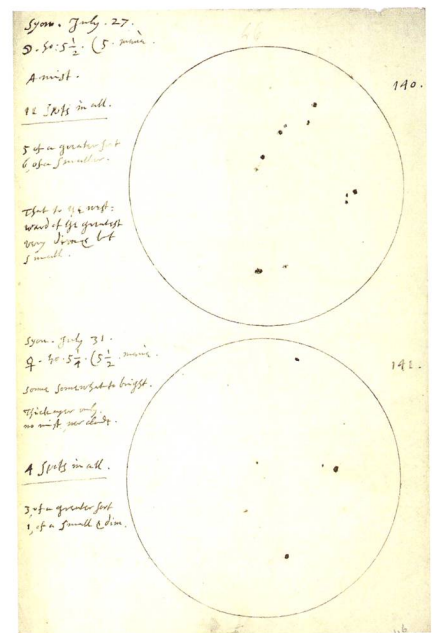 Syon. July. 27.
ho: 5 1/2. (5.
A mist.
140.
12 spots in all.
5 of a greater sort
6, of a smaller.
That to the west:
ward of the greatest
very dime but
small.
Syon. July 31.
♀. ho: 5 1/4. (5 1/2.
141.
some somewhat to bright.
Thick ayer only.
no mist, nor clouds.
4 spots in all.
3, of a greater sort
1, of a small & dim.